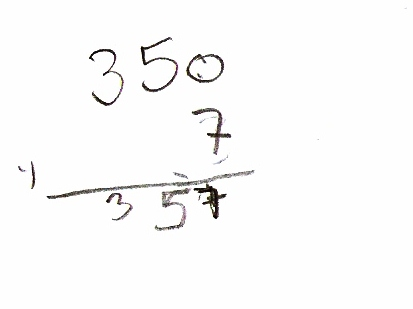 350
7
357